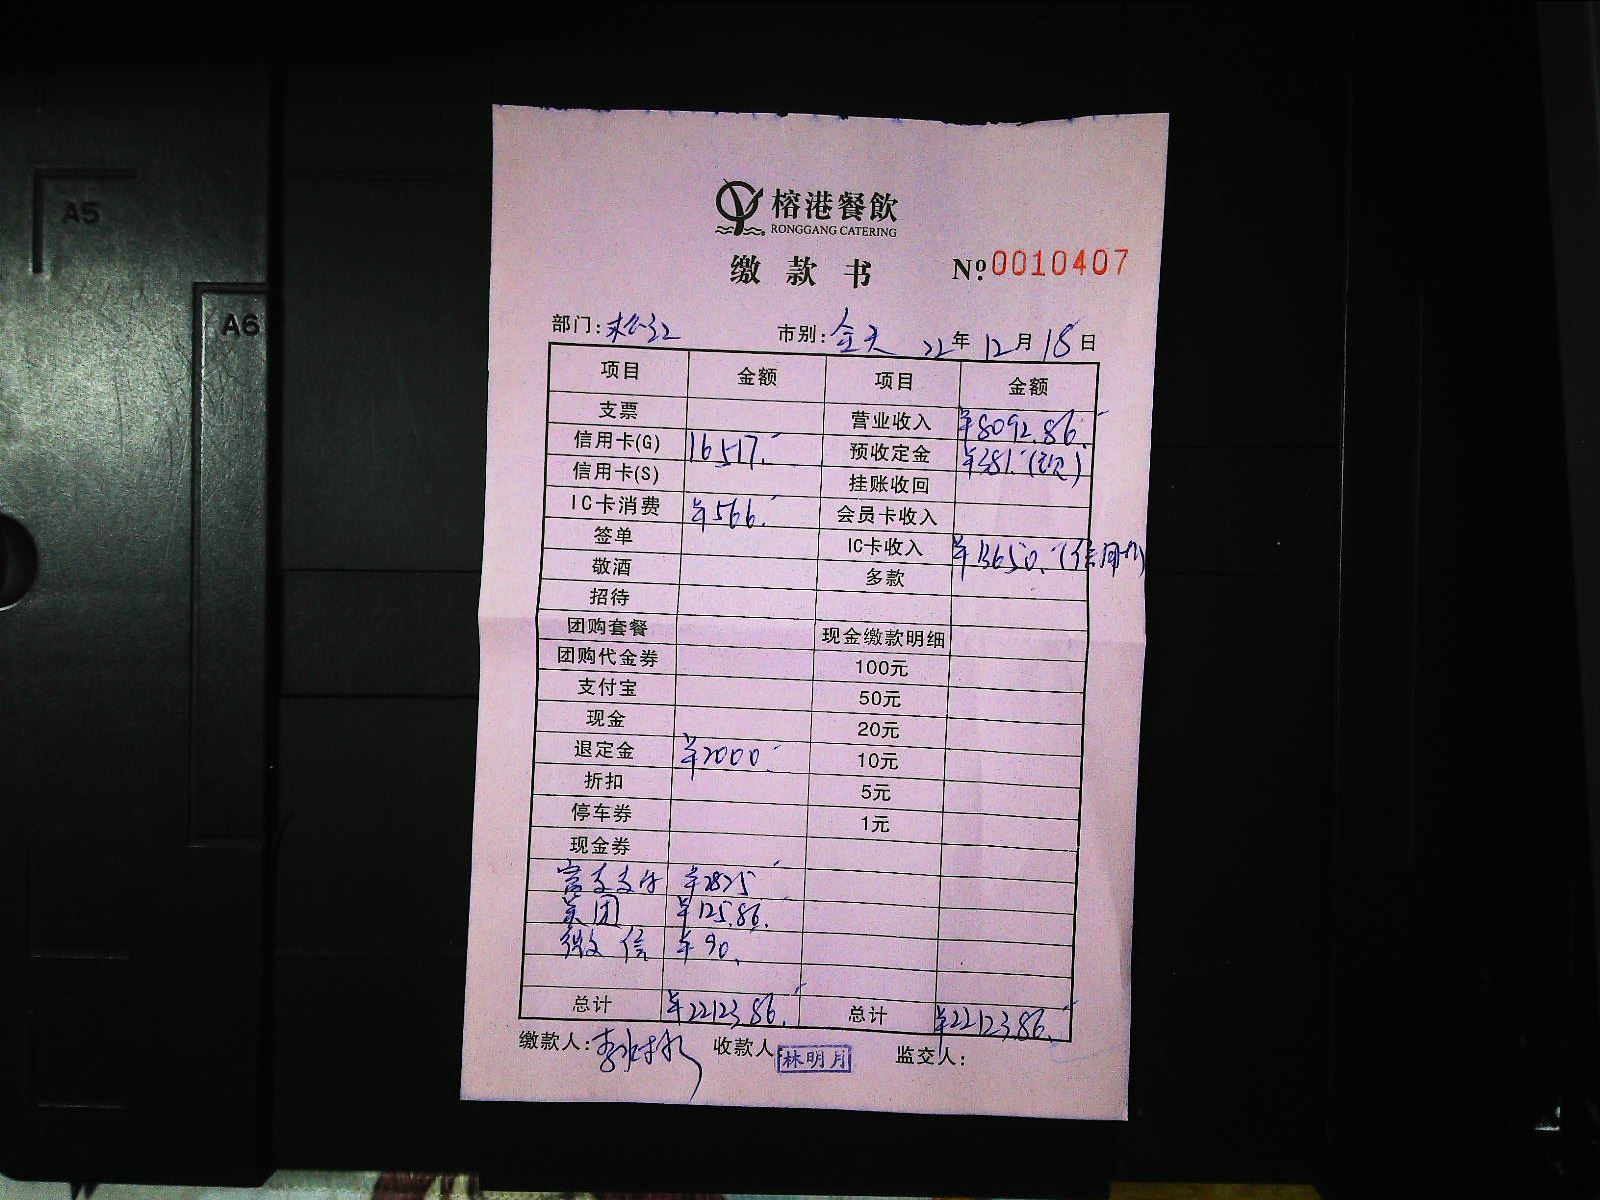 A5
A6
榕港餐飲
RONGGANG CATERING
缴款书 №0010407
部门:松江 市别:全天 22年12月18日
项目 金额 项目 金额
支票 营业收入 ¥8092.86
信用卡(G) 16517. 预收定金 ¥381.
信用卡(S) 挂账收回
IC卡消费 ¥566. 会员卡收入
签单 IC卡收入 ¥13650.(信用卡)
敬酒 多款
招待
团购套餐 现金缴款明细
团购代金券 100元
支付宝 50元
现金 20元
退定金 ¥2000. 10元
折扣 5元
停车券 1元
现金券
富友支付 ¥2825
美团 ¥125.86.
微信 ¥90.
总计 ¥22123.86. 总计 ¥22123.86.
缴款人: 收款人 林明月 监交人: